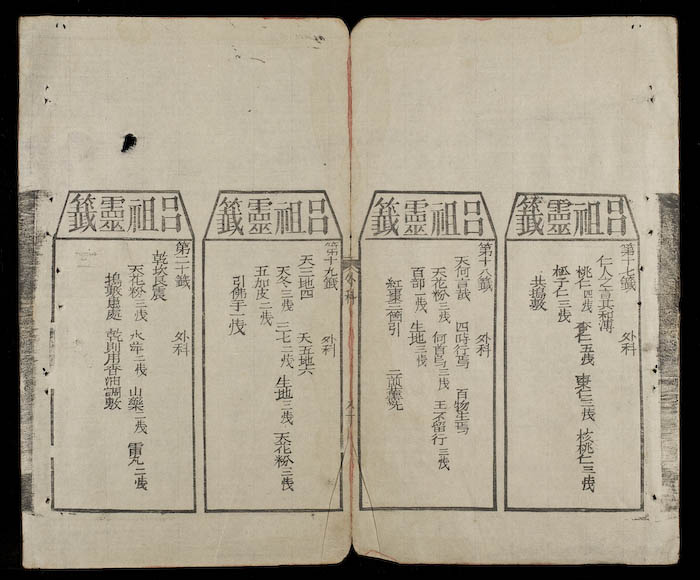 呂祖靈籤
第十七籤 外科
仁人之言其利溥
桃仁四錢 杏仁五錢 棗仁三錢 核桃仁三錢
梔子仁三錢
共搗敷
呂祖靈籤
第十八籤 外科
天何言哉 四時行焉 百物生焉
天花粉三錢 何首烏三錢 王不留行三錢
百部二錢 生地三錢
紅棗三個引 二煎薰洗
外科
呂祖靈籤
第十九籤 外科
天三地四 天五地六
天冬三錢 三七二錢 生地三錢 天花粉三錢
五加皮二錢
引佛手一錢
呂祖靈籤
第二十籤 外科
乾坎艮震
天花粉三錢 水萍二錢 山藥二錢 雷丸二錢
搗敷患處 乾則用香油調敷